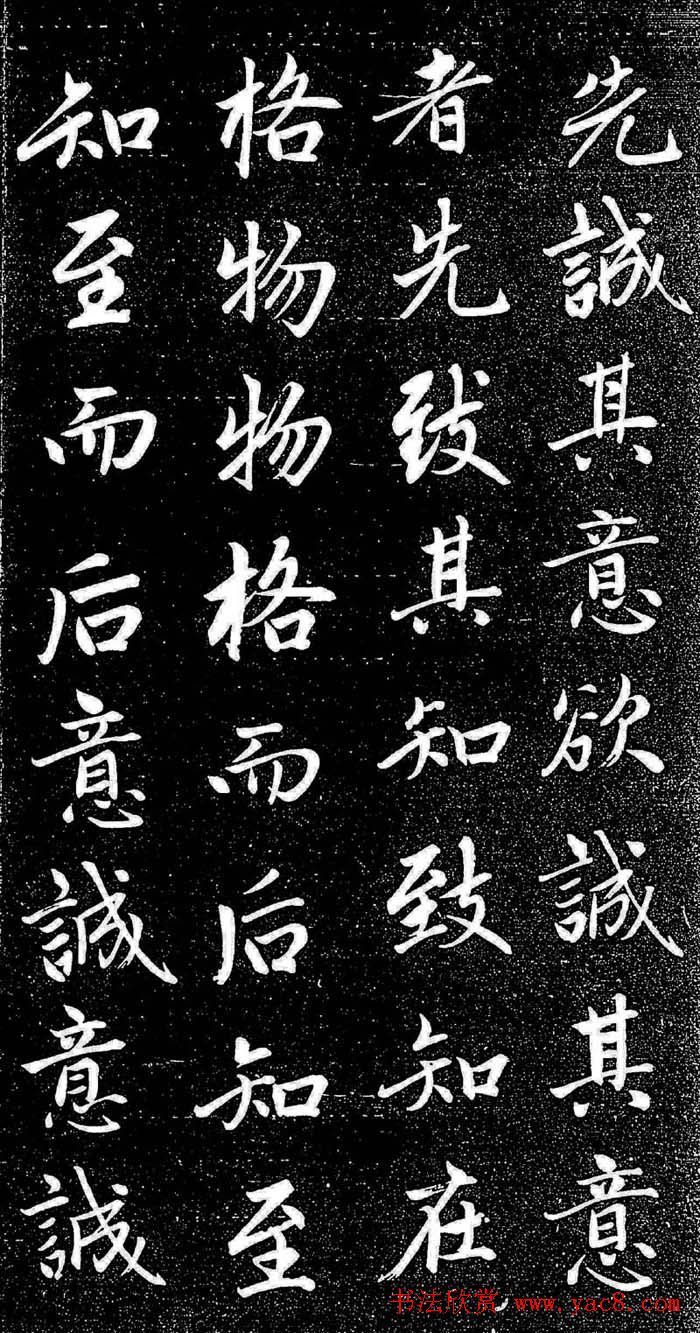 先誠其意欲誠其意
者先致其知致知在
格物物格而后知至
知至而后意誠意誠
书法欣赏 www.yac8.com